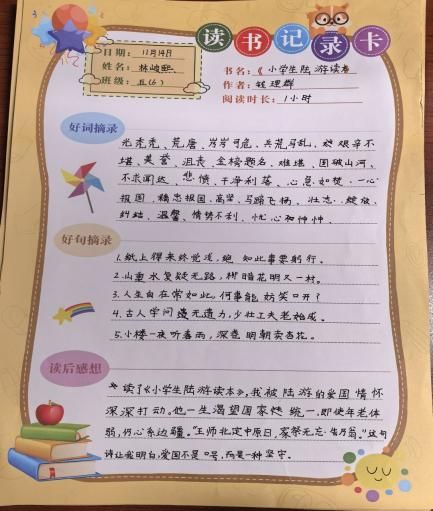 读书记录卡
日期：11月14日
姓名：林峻熙
班级：五(6)
书名：《小学生陆游读本》
作者：钱理群
阅读时长：1小时
好词摘录
光秃秃、荒唐、岌岌可危、兵荒马乱、艰辛不
堪、美誉、沮丧、金榜题名、难堪、国破山河、
不求闻达、悲愤、干净利落、心急如焚、一心
报国、精忠报国、高坚、马蹄飞扬、壮志、绽放、
纠结、温馨、情势不利、忧心忡忡、
好句摘录
1.纸上得来终觉浅，绝知此事要躬行。
2.山重水复疑无路，柳暗花明又一村。
3.人生自在常如此，何事能妨笑口开？
4.古人学问遗无遗力，少壮工夫老始成。
5.小楼一夜听春雨，深巷明朝卖杏花。
读后感想
读了《小学生陆游读本》，我被陆游的爱国情怀
深深打动，他一生渴望国家统一，即使年老体
弱，仍心系边疆。“王师北定中原日，家祭无忘告乃翁。”这句
诗让我明白，爱国不是口号，而是一种坚守。